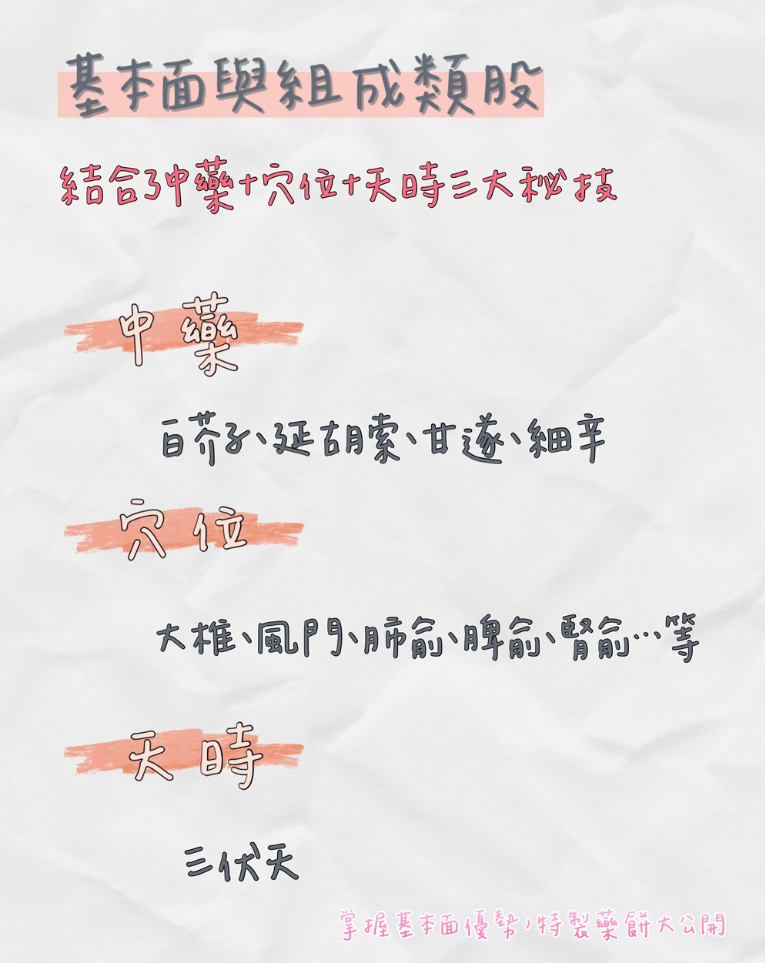 基本面與組成類股
結合了中藥+穴位+天時三大秘技
中藥
白芥子、延胡索、甘遂、細辛
穴位
大椎、風門、肺俞、脾俞、腎俞…等
天時
三伏天
掌握基本面優勢,特製藥餅大公開